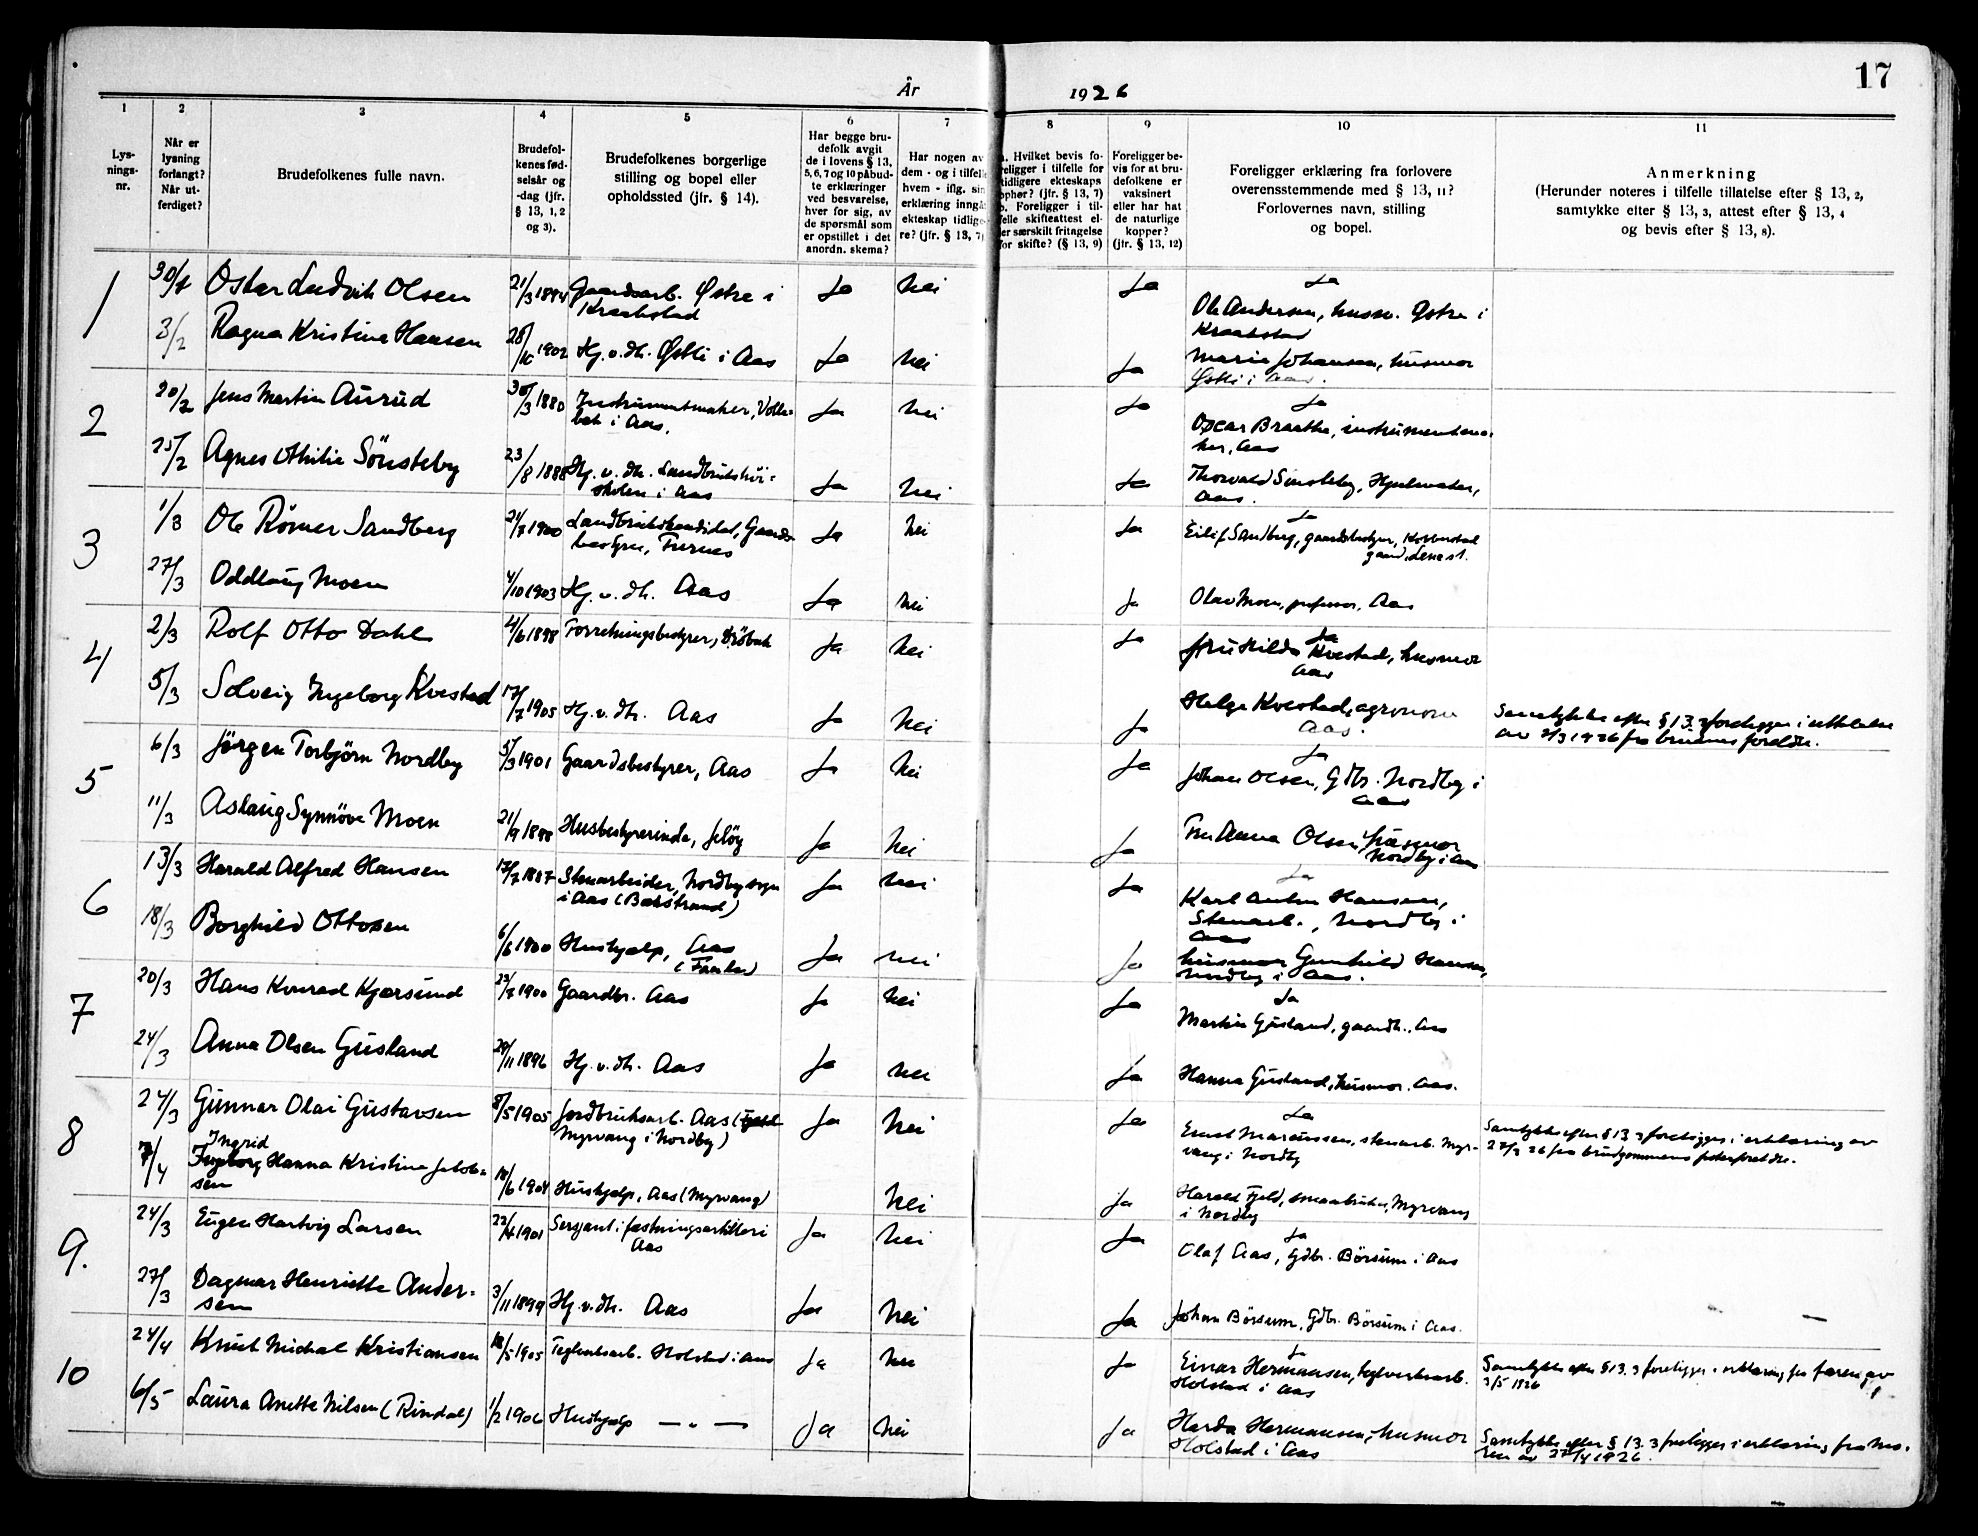 17
År 1926
1 2 3 4 5 6 7 8 9 10 11
Lysningsnr.
Når er lysning forlangt? Når utferdiget?
Brudefolkenes fulle navn.
Brudefolkenes fødselsår og -dag (jfr. § 13, 1, 2 og 3).
Brudefolkenes borgerlige stilling og bopel eller opholdssted (jfr. § 14).
Har begge brudefolk avgit de i lovens § 13, 5, 6, 7 og 10 påbudte erklæringer ved besvarelse, hver for sig, av de spørsmål som er opstillet i det anordn. skema?
Har nogen av dem - og i tilfelle hvem - iflg. sin erklæring inngå ekteskap tidligere? (jfr. § 13, 7)
Hvilket bevis foreligger i tilfelle for tidligere ekteskaps ophør? (jfr. § 13, 7) b. Foreligger i tilfelle skifteattest eller særskilt fritagelse for skifte? (§ 13, 9)
Foreligger bevis for at brudefolkene er vaksinert eller har hat de naturlige kopper? (jfr. § 13, 12)
Foreligger erklæring fra forlovere overensstemmende med § 13, 11? Forlovernes navn, stilling og bopel.
Anmerkning (Herunder noteres i tilfelle tillatelse efter § 13, 2, samtykke efter § 13, 3, attest efter § 13, 4 og bevis efter § 13, 8).
1 30/1 Oskar Ludvik Olsen 21/3 1894 Gaardsarb. Østre i Kraakstad Ja Nei Ja Ja
Ole Andersen, husm. Østre i Kraakstad
3/2 Ragna Kristine Hansen 28/10 1902 Hj.v.dh. Østli i Aas Ja Nei Ja Marie Johansen, husmor Østli i Aas.
2 20/2 Jens Martin Aurud 30/3 1880 Instrumentmaker, Vollebæk i Aas. Ja Nei Ja Ja
Oscar Braathe, instrumentmaker, Aas
25/2 Agnes Othilie Sönsteby 23/8 1888 Hj. v. dh. Landbrukshöiskolen i Aas Ja Nei Ja Thorvald Sönsteby, Hjulmaker, Aas.
3 1/3 Ole Römer Sandberg 21/7 1900 Landbrukskandidat, Gaardsbestyrer, Furnes Ja Nei Ja Ja
Eilif Sandberg, gaardsbestyrer, Kolbustad gaard, Lena st.
27/3 Oddlaug Moen 4/10 1903 Hj. v. dh. Aas Ja Nei Ja Olav Moen, professor, Aas
4 2/3 Rolf Otto Dahl 4/6 1898 Forretningsbestyrer, Dröbak Ja Nei Ja Ja
Fru Hilda Kvestad, husmor Aas
5/3 Solveig Ingeborg Kvestad 17/7 1905 Hj.v.dh. Aas Ja Nei Ja Helge Kvestad, agronom Aas.
Samtykke efter § 13.3 foreligger i uttalelse av 2/3 1926 fra brudens foreldre.
5 6/3 Jörgen Torbjörn Nordby 5/3 1901 Gaardsbestyrer, Aas Ja Nei Ja Ja
Johan Olsen, Gdbr. Nordby i Aas
11/3 Aslaug Synnöve Moen 21/9 1898 Husbestyrerinde, Jelöy Ja Nei Ja Fru Anna Olsen, husmor Nordby i Aas
6 13/3 Harald Alfred Hansen 17/7 1887 Stenarbeider, Nordby sogn i Aas (Bækstrand) Ja Nei Ja Ja
Karl Anton Hansen, Stenarb., Nordby i Aas
18/3 Borghild Ottosen 6/6 1900 Hushjælp, Aas Ja Nei Ja husmor Gunhild Hansen, Nordby i Aas.
7 20/3 Hans Konrad Kjærsund 23/7 1900 Gaardbr. Aas Ja Nei Ja Ja
Martin Gusland, gaardb., Aas
24/3 Anna Olsen Gusland 29/11 1896 Hj. v. dh. Aas Ja Nei Ja Hanna Gusland, husmor. Aas.
8 24/3 Gunnar Olai Gustavsen 8/5 1905 Jordbruksarb. Aas (Myrvang i Nordby) Ja Nei Ja Ja
Ernst Marcussen, stenarb. Myrvang i Nordby
Samtykke efter § 13.3 foreligger i erklæring av 27/3 26 fra brudgommens fosterforeldre.
7/4 Ingrid Ingeborg Hanna Kristine Jakobsen 18/6 1904 Hushjælp, Aas (Myrvang) Nei Ja Harald Fjeld, smaabruker, Myrvang i Nordby
9. 24/3 Eugen Hartvig Larsen 22/4 1901 Sersjant i fæstningsartilleri Aas Ja Nei Ja Ja
Olaf Aas, Gdbr. Börsum i Aas
27/3 Dagmar Henriette Andersen 3/11 1899 Hj.v.dh. Aas Ja Nei Ja Johan Börsum, Gdbr. Börsum i Aas.
10 24/4 Knut Michal Kristiansen 18/5 1905 Teglverksarb. Holstad i Aas Ja Nei Ja Ja
Einar Hermansen, teglverksarb. Holstad i Aas
Samtykke efter § 13.3 foreligger i erklæring fra faren av 3/5 1926
6/5 Laura Anette Nilsen (Rindal) 1/2 1906 Hushjælp — " — Ja Nei Ja Harda Hermansen, husmor Holstad i Aas
Samtykke efter § 13.3 foreligger i erklæring fra moren av 27/4 1926.